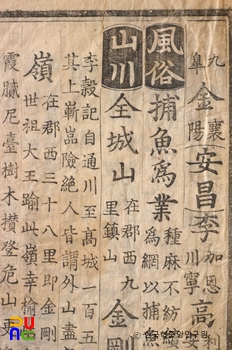 九阜金襄陽安昌李加恩川寧高
風俗捕魚爲業種麻不紡
爲網以捕魚
山川仝城山在郡西九
里鎮山金剛
李穀記自通川至高城一百五
其上嶄嵒險絶人皆謂外山盡
嶺在郡西三十八里即金剛
世祖大王踰此嶺幸榆
霞臟尼臺樹木攢登危山更